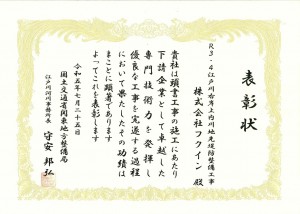 表彰状
R3-4江戸川右岸上内川地先堤防整備工事
株式会社フクイン 殿
貴社は頭書工事の施工にあたり
下請企業として卓越した
専門技術力を発揮し
優良な工事を完遂する過程
において果たしたその功績は
まことに顕著であります
よってこれを表彰します
令和五年七月二十五日
国土交通省関東地方整備局
江戸川河川事務所長
守安 邦弘